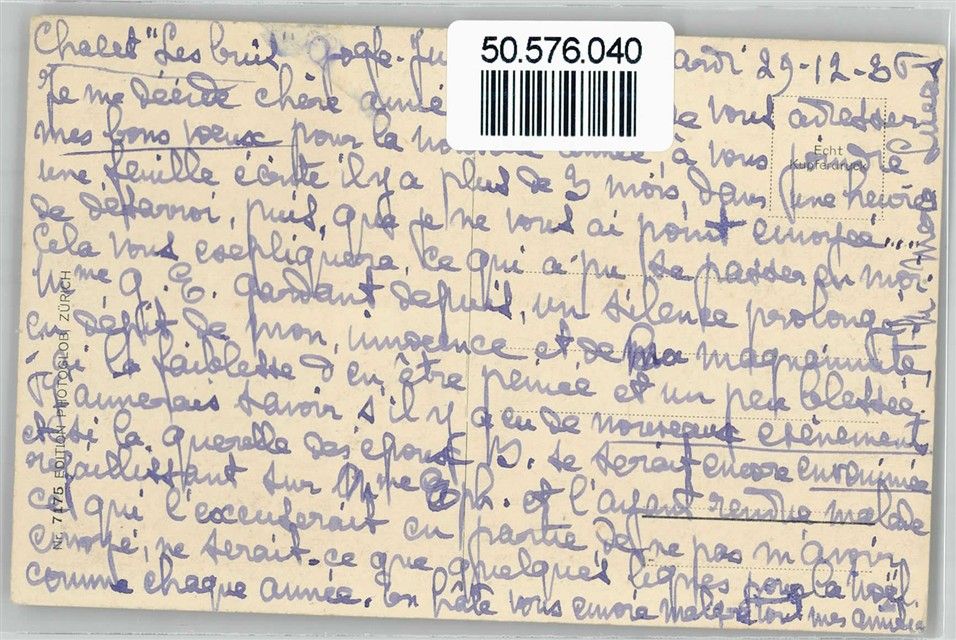 50.576.040
Chalet "Les bruits" 29-12-36
Je me décide chère amie vous adresser
mes bons voeux pour la année, à vous joindre
Echt
Kupferdruck
une feuille écrite il y a plus de 3 mois, dans une heure
de désarroi, puis, que je ne vous ai point envoyée....
Cela vous expliquera, ce qui a pu se passer en moi
Mme G. E. gardant depuis, un silence prolongé
en dépit de mon, innocence et de ma magnanimité,
j'ai la faiblesse d'en être peinée et un peu blessée.
J'aimerais savoir s'il y a eu de nouveaux évènements
et si la querelle des époux B. se serait encore envenimée
rejaillissant sur Mme Eph. et l'ayant rendue malade
ce qui l'excuserait en partie de ne pas m'avoir
envoyé, ne serait-ce que quelques lignes pour la Noël
comme chaque année. En hâte vous envoie malgré tout mes amitiés
Nr. 7175 EDITION PHOTOGLOB, ZÜRICH